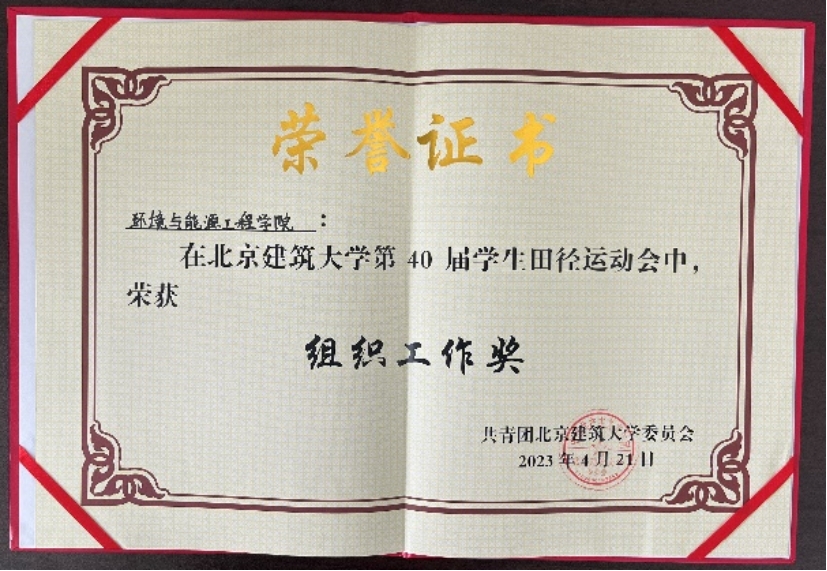 荣誉证书
环境与能源工程学院：
在北京建筑大学第 40 届学生田径运动会中，
荣获
组织工作奖
共青团北京建筑大学委员会
2023 年 4 月 21 日